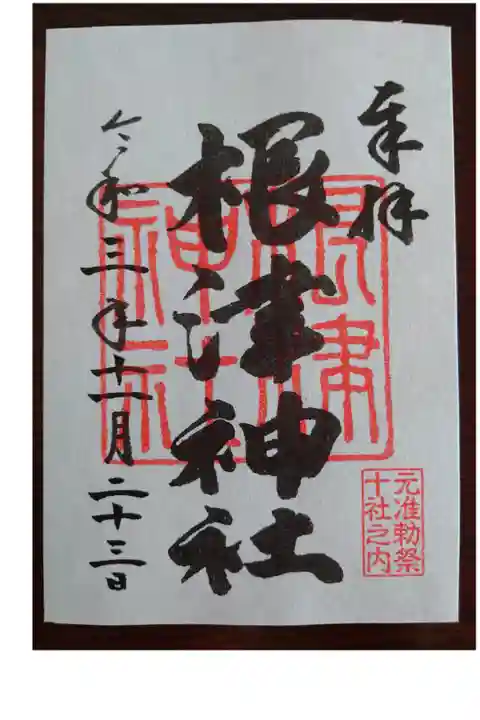 奉拝
根津神社
根津神社
元准勅祭
十社之内
令和三年十一月二十三日